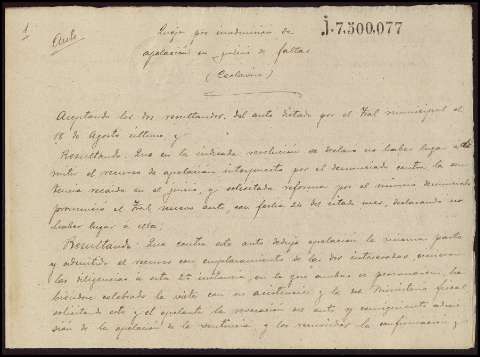 1
J.7.500,077
Auto
Queja por inadmision de
apelacion en juicio de faltas
(Esclavina)
Aceptando los dos resultandos del auto dictado por el Tral municipal el
18 de Agosto último y
Resultando: Que en la indicada resolucion se declara no haber lugar a ad
mitir el recurso de apelacion interpuesto por el denunciado contra la sen
tencia recaida en el juicio, y solicitada reforma por el mismo denunciado
pronunció el Tral nuevo auto, con fecha 24 del citado mes, declarando no
haber lugar á ella;
Resultando: Que contra este auto dedujo apelacion la misma parte
y admitido el recurso con emplazamiento de los dos interesados vinieron
las diligencias á esta 2ª instancia, en la que ambos se personaron, ha
biendose celebrado la vista con su asistencia y la del Ministerio fiscal
solicitando este y el apelante la revocacion del auto y consiguiente admi
sion de la apelacion de la sentencia, y los la confirmacion y